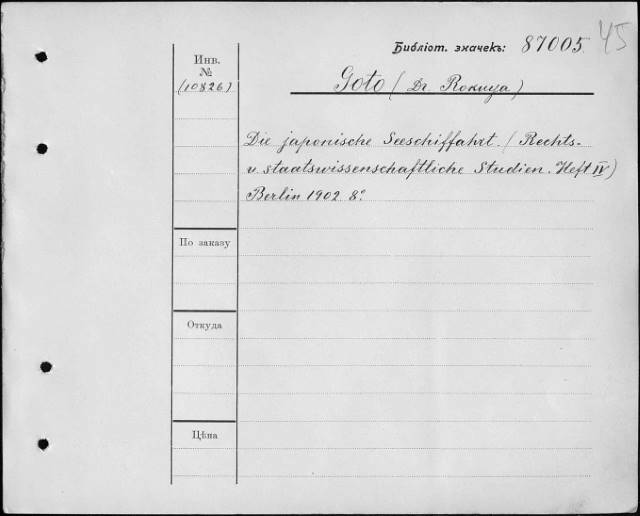 Библіот. значекъ: 87005. 45
Инв.
№
(10826)
Goto (Dr. Rokuya)
Die japonische Seeschiffahrt. (Rechts-
u. staatswissenschaftliche Studien. Heft IV)
Berlin 1902. 8°.
По заказу
Откуда
Цѣна